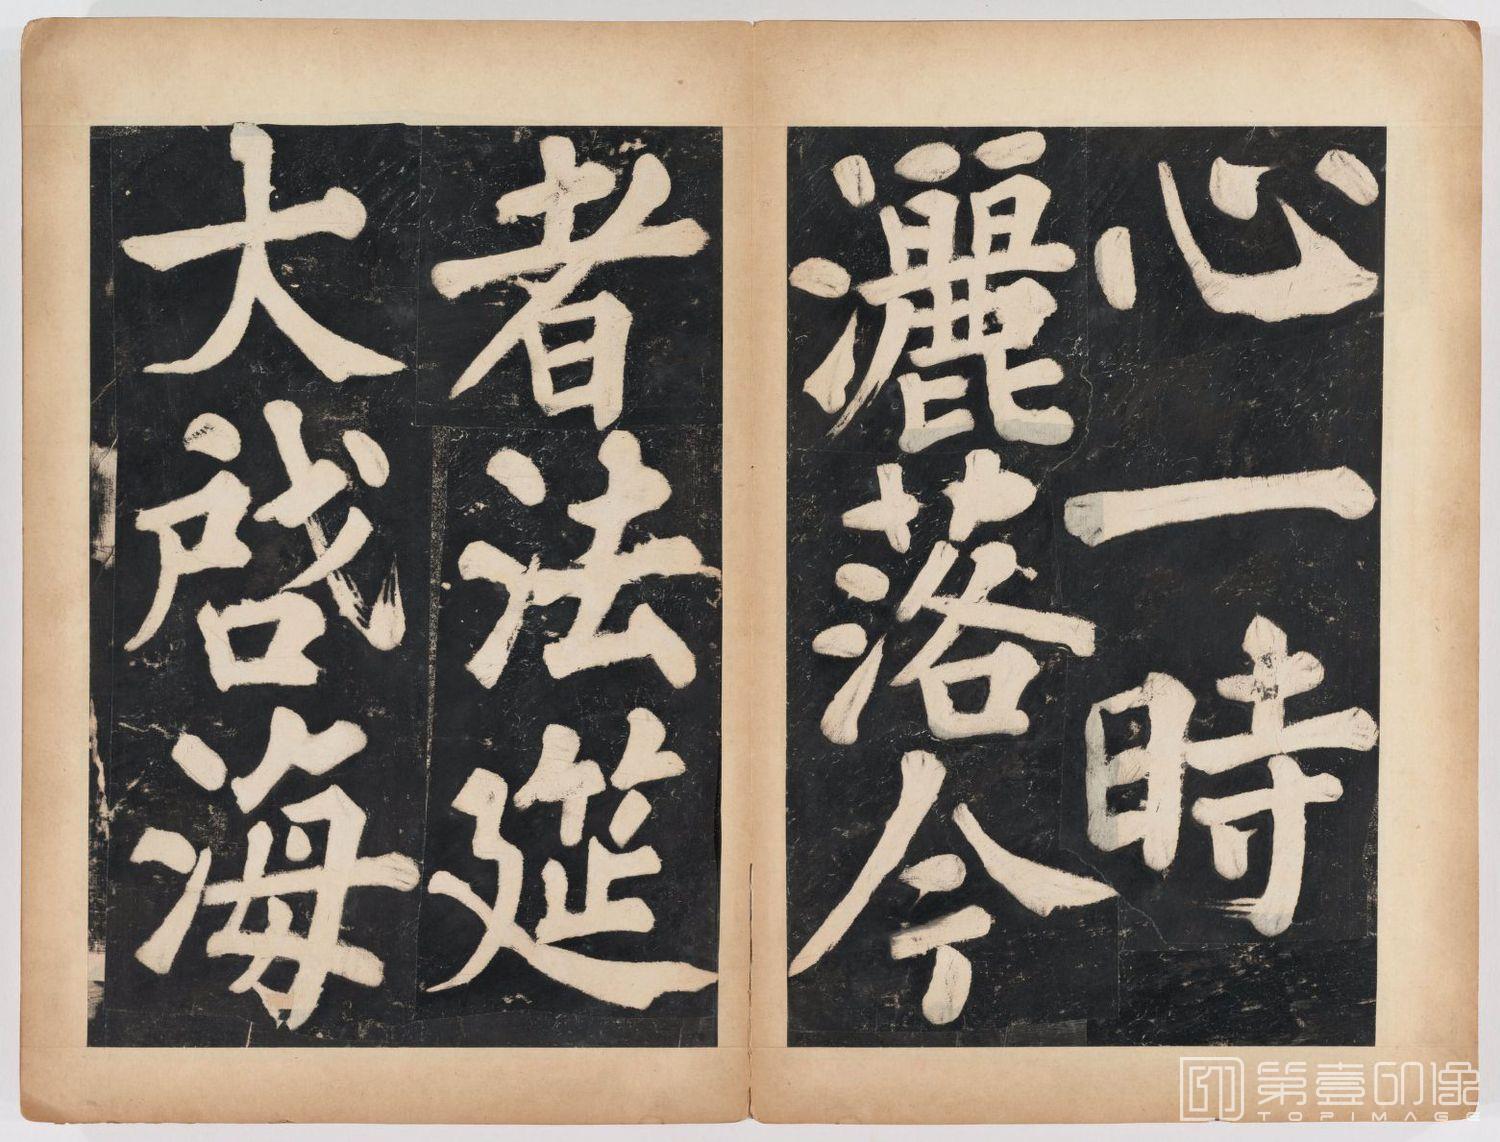 心一時
灑落今
者法筵
大啓海
第壹印像
TOPIMAGE